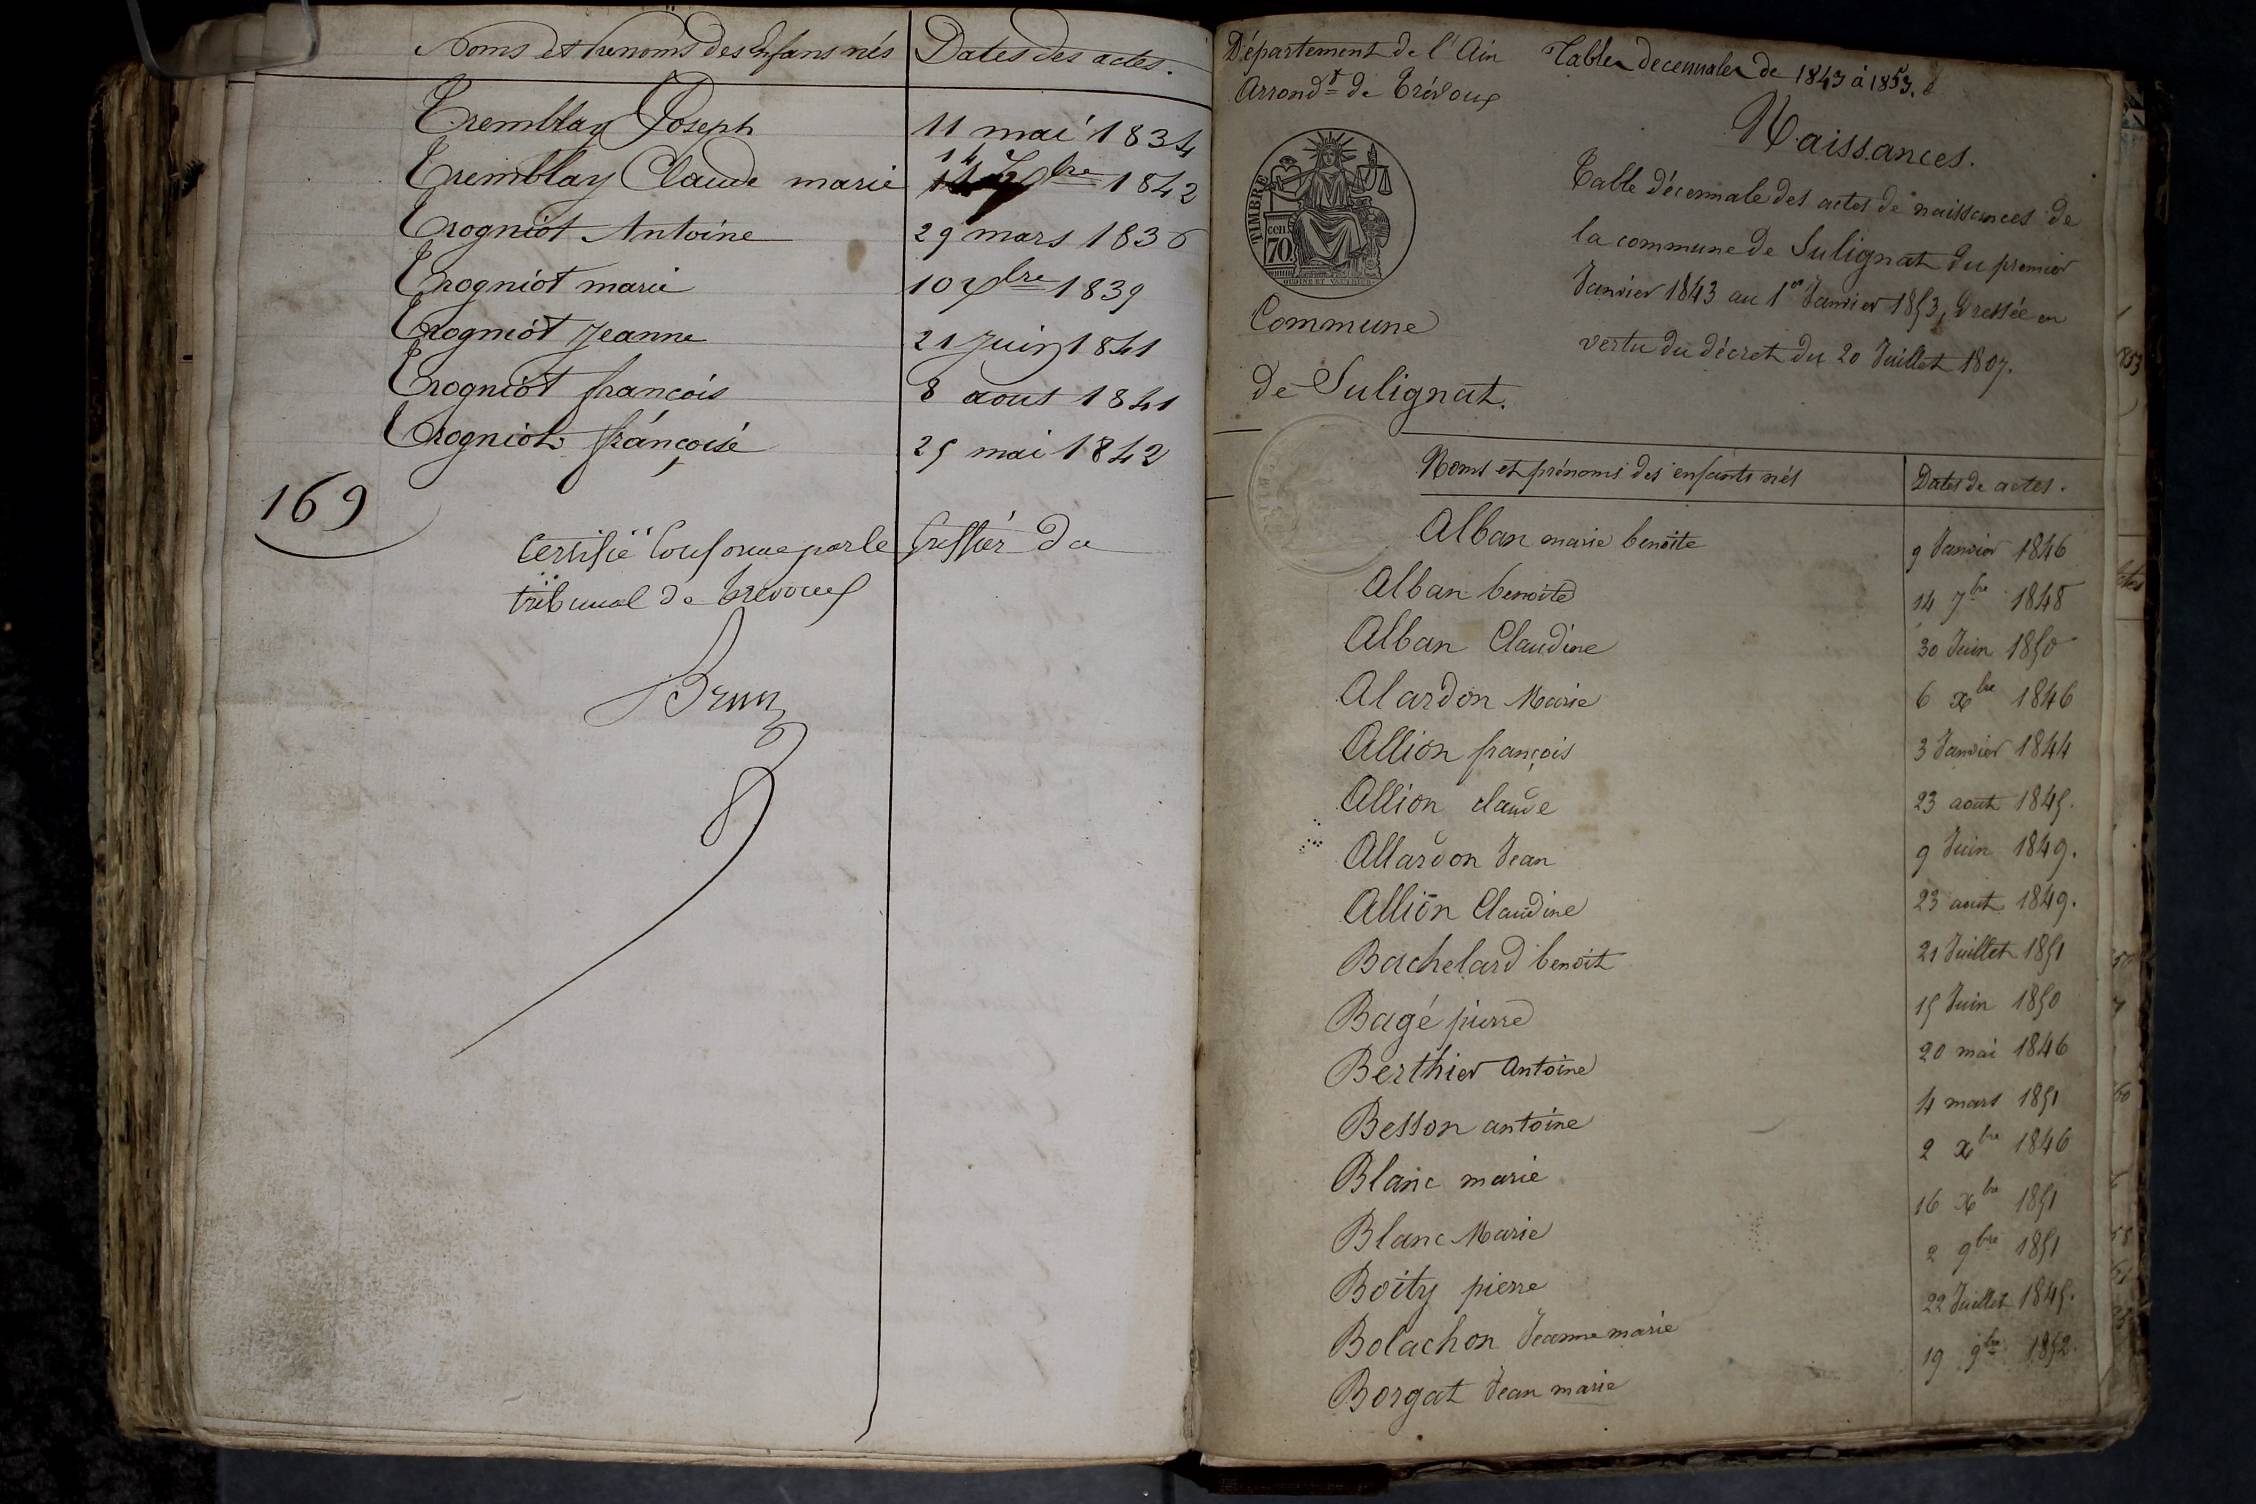 Noms et prenoms des Enfans nés Dates des actes.
Tremblay Joseph 11 mai 1834
Tremblay Claude marie 14 bre 1842
Trogniot Antoine 29 mars 1836
Trogniot marie 10 bre 1839
Trogniot Jeanne 21 Juin 1841
Trogniot françois 8 aout 1841
Trogniot françoise 25 mai 1842
169
Certifié Conforme par le Greffier du
tribunal de trevoux
Brun
Département de l'Ain
Arrondt de Trévoux
Tables decennales de 1843 à 1853.
Naissances.
TIMBRE
cen.
70
Commune
de Sulignat.
Table décennale des actes de naissances de
la commune de Sulignat du premier
Janvier 1843 au 1er Janvier 1853, Dressée en
vertu du décret du 20 Juillet 1807.
Noms et prénoms des enfants nés Dates de actes.
Alban marie benoite 9 Janvier 1846
Alban benoite 14 7bre 1848
Alban Claudine 30 Juin 1850
Alardon Marie 6 xbre 1846
Allion françois 3 Janvier 1844
Allion claude 23 aout 1845.
Allardon Jean 9 Juin 1849.
Allion Claudine 23 aout 1849.
Bachelard benoit 21 Juillet 1851
Bagé pierre 15 Juin 1850
Berthier Antoine 20 mai 1846
Besson antoine 4 mars 1851
Blanc marie 2 xbre 1846
Blanc Marie 16 xbre 1851
Boity pierre 2 9bre 1851
Bolachon Jeanne marie 22 Juillet 1845.
Borgat Jean marie 19 9bre 1852.